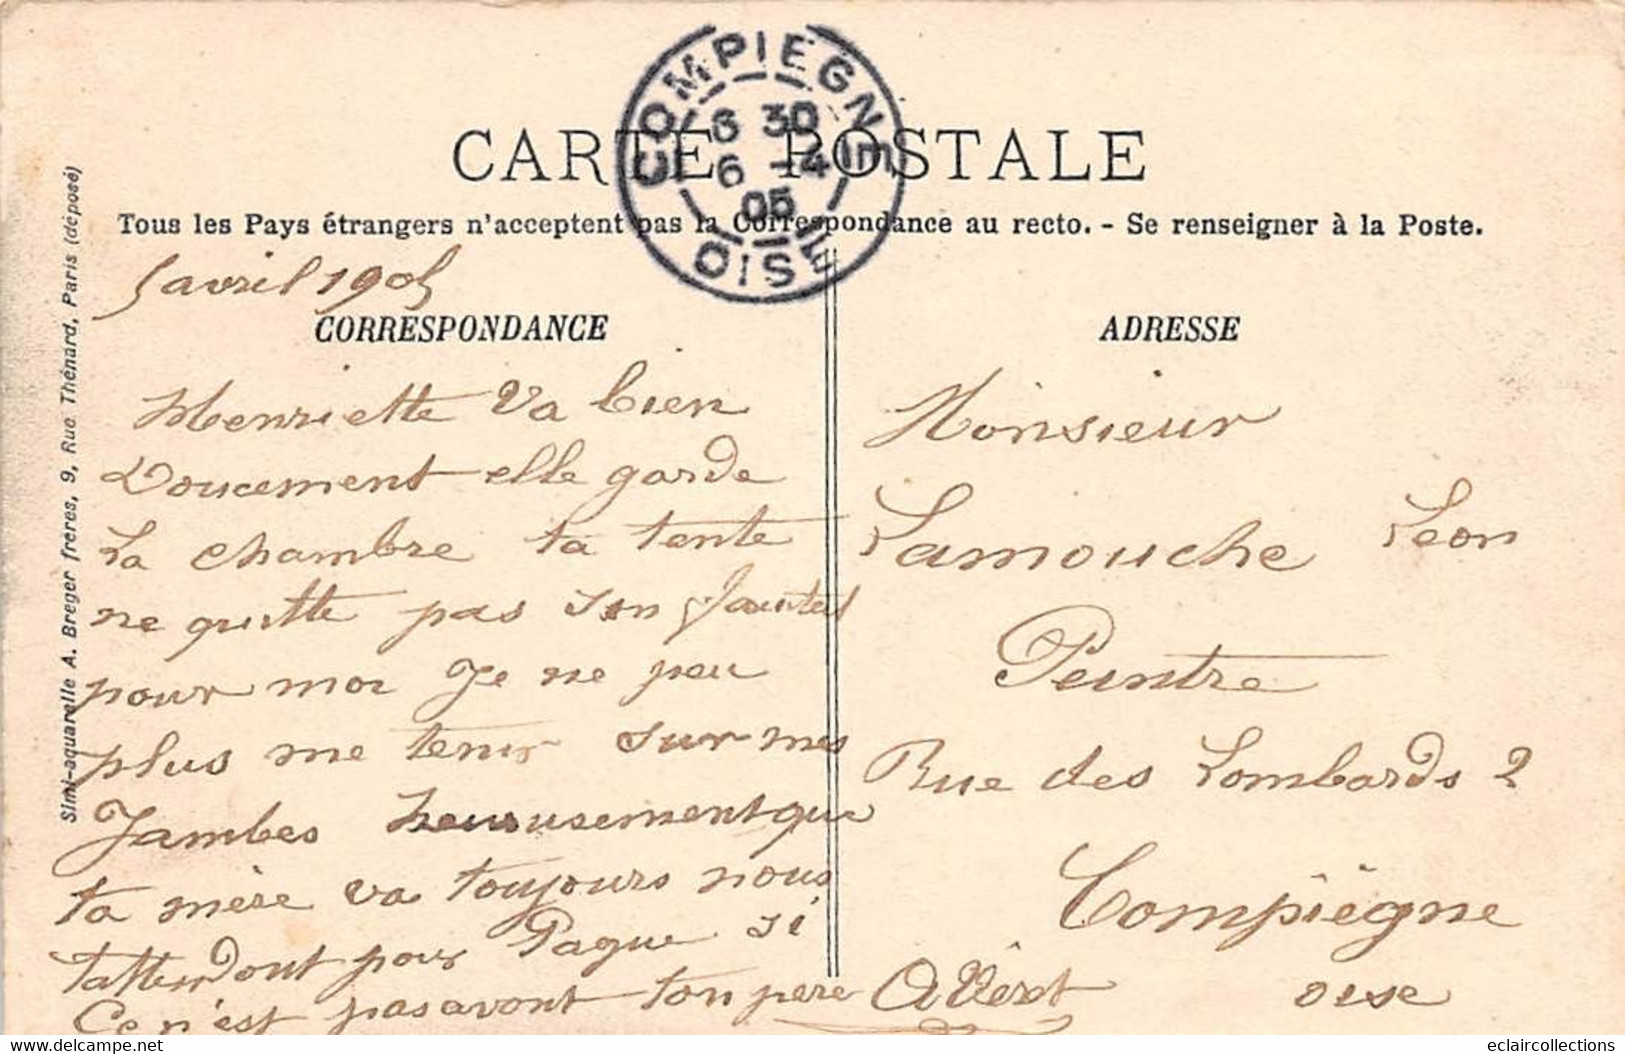 COMPIEGNE
6 30
6 -4
05
OISE
CARTE POSTALE
Tous les Pays étrangers n'acceptent pas la Correspondance au recto. - Se renseigner à la Poste.
5 avril 1905
CORRESPONDANCE
Henriette va bien
Doucement elle garde
La chambre ta tente
ne quitte pas son fauteul
pour moi Je ne peu
plus me tenir sur mes
Jambes heusement que
ta mère va toujours nous
tattendont pour Paque si
Ce n'est pas avant ton père
ADRESSE
Monsieur
Lamouche Léon
Peintre
Rue des Lombards 2
Compiègne
oise
Simi-aquarelle A. Breger frères, 9, Rue Thénard, Paris (déposé)
https://www.delcampe.net/fr/collections/store/eclaircollections
eclaircollections